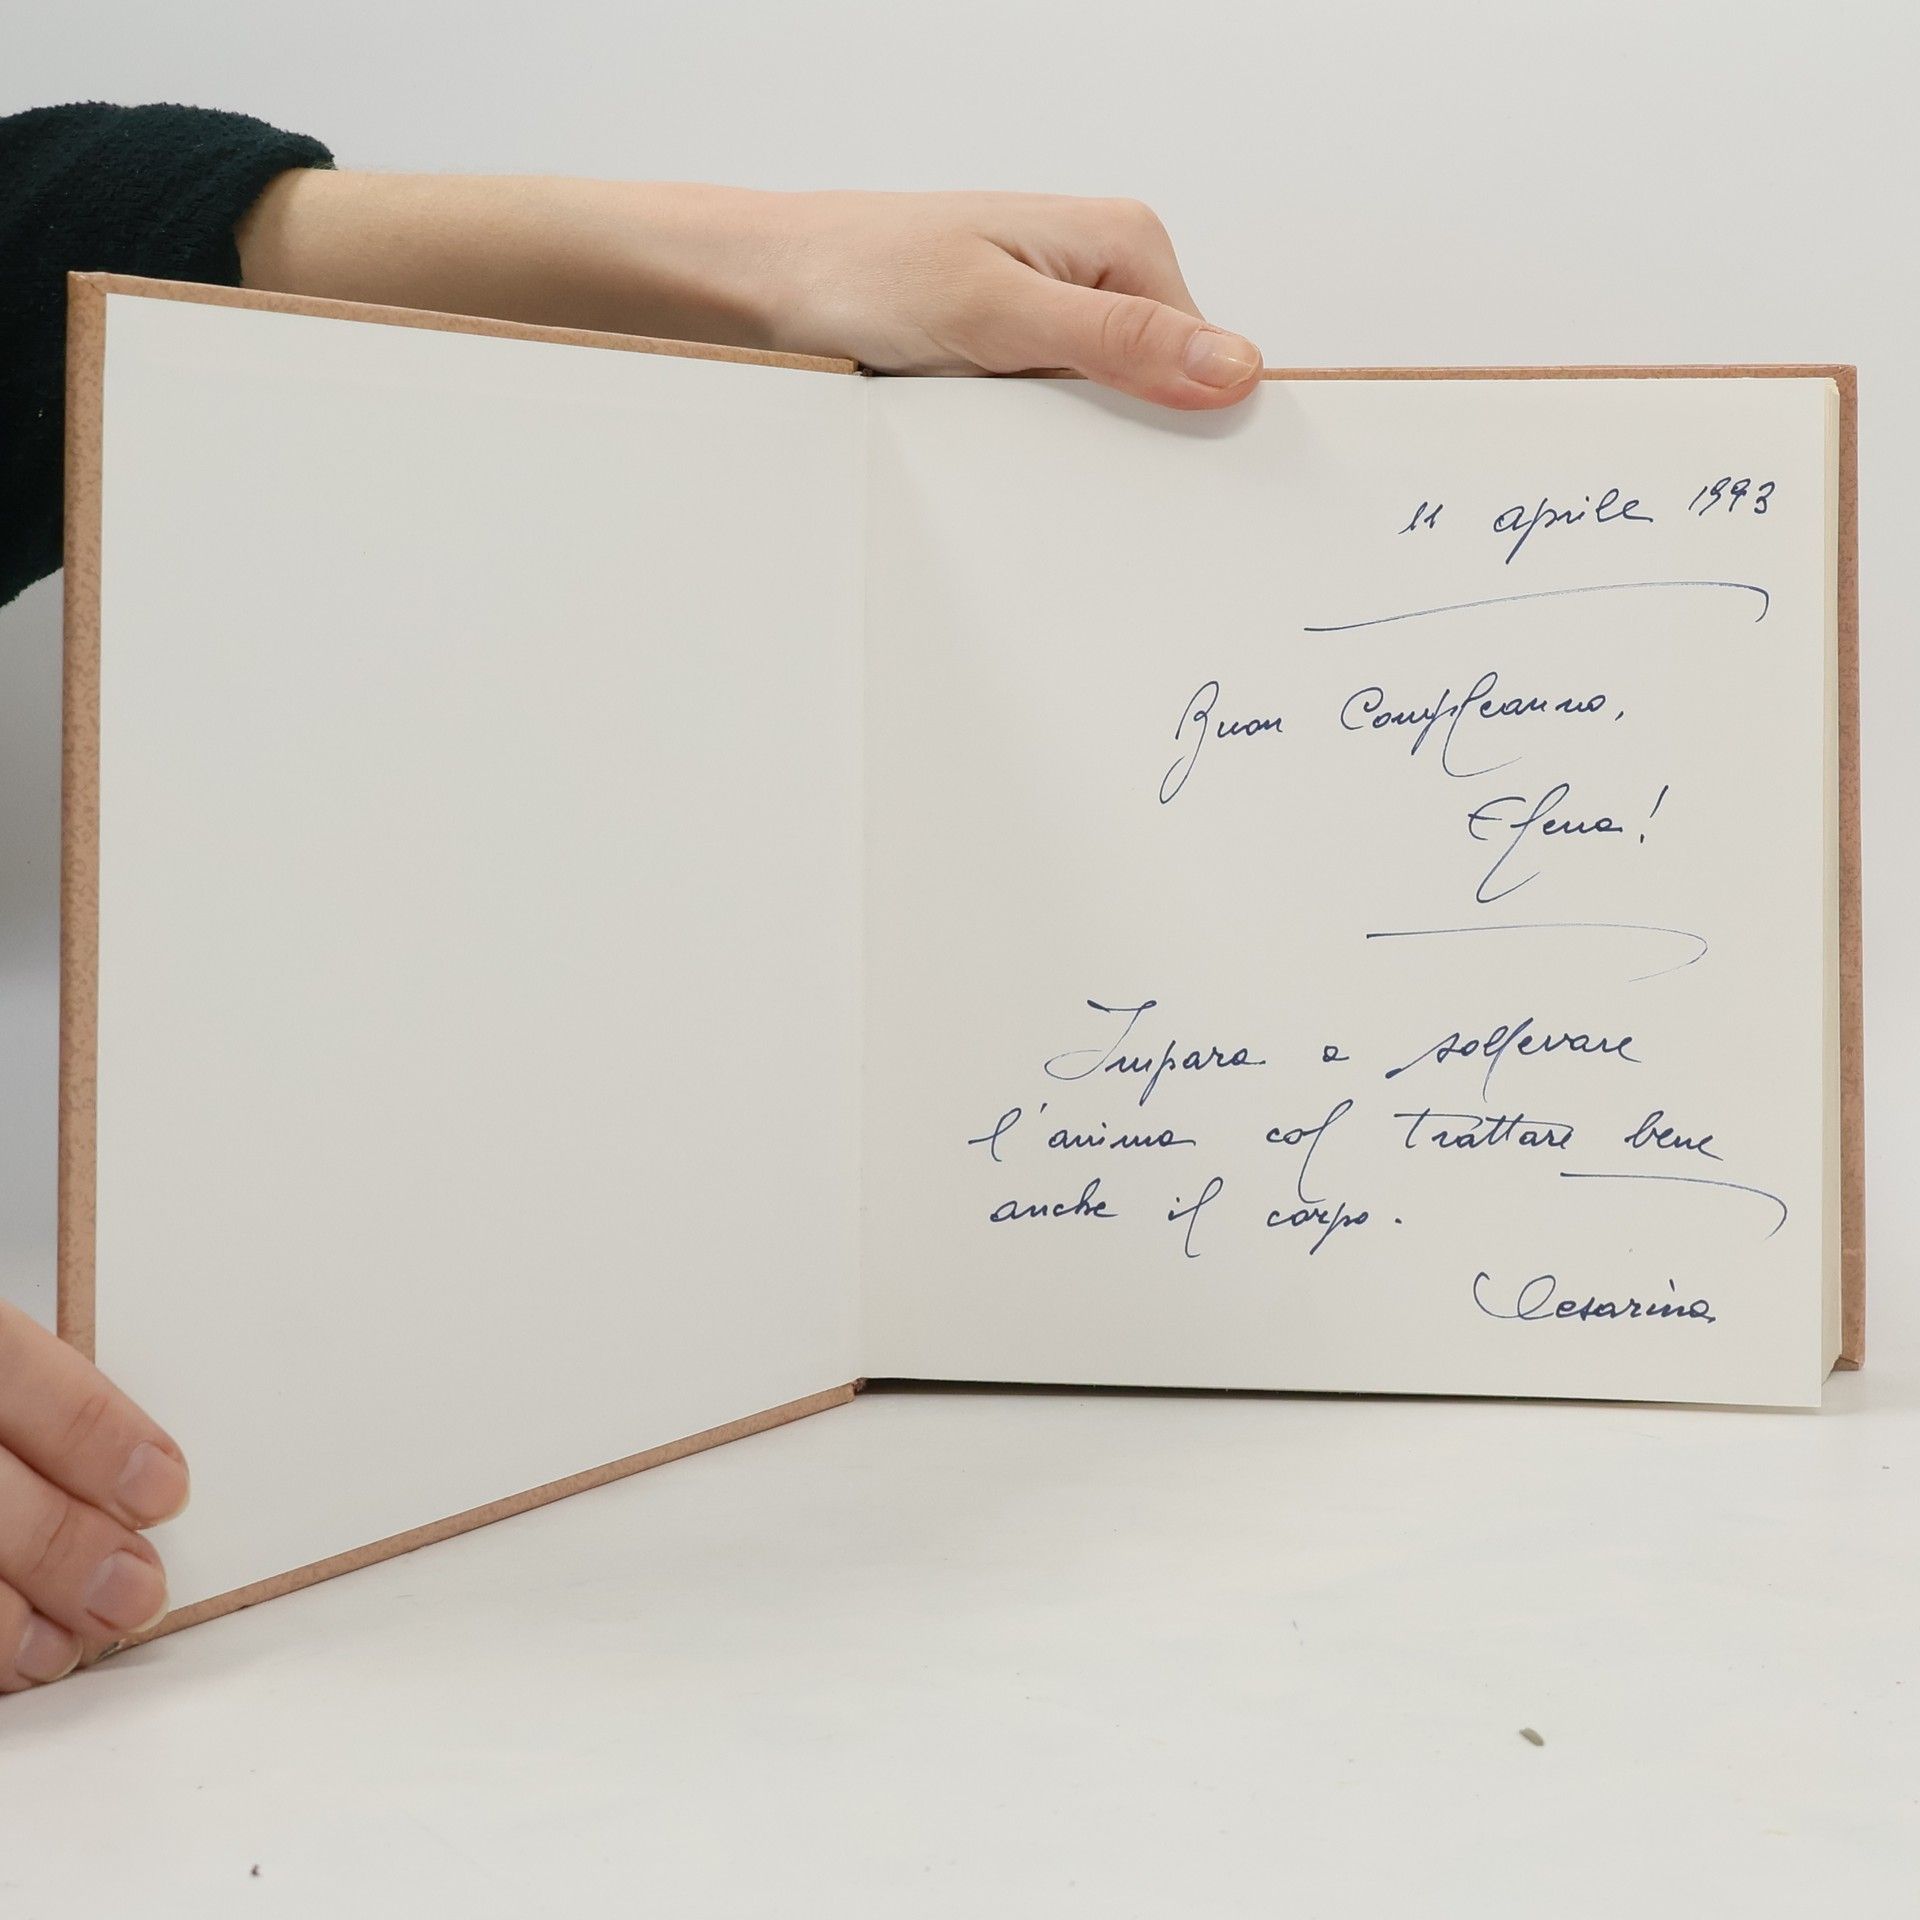 11 aprile 1993
Buon Compleanno,
Elena!
Impara a sollevare
l'anima col trattare bene
anche il corpo.
Cesarina